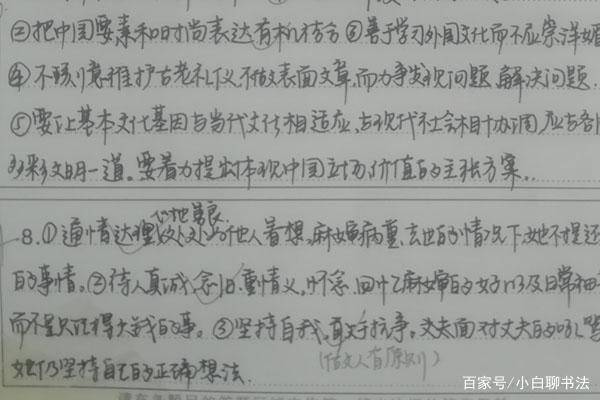 ②把中国要素和时尚表达有机结合③善于学习外国文化而不应崇洋媚
④不刻意维护古老礼仪不做表面文章,而力争发现问题,解决问题.
⑤要让基本文化基因与当代文化相适应,与现代社会相协调,应与各
多彩文明一道。要着力提出体现中国立场、价值的主张方案.
心地善良
8.①通情达理,设处为他人着想.麻婶病重、去世的情况下,她不提还
的事情。②待人真诚,念旧,重情义,怀念、回忆麻婶的好以及日常细
而不是只记得欠我的事。③坚持自我,勇于抗争。丈夫面对丈夫的
她仍坚持自己的正确想法.
(做人有原则)
百家号/小白聊书法